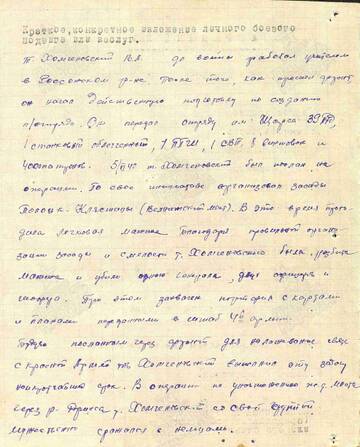 Краткое, конкретное изложение личного боевого
подвига или заслуг.
т. Хомченовский В.А. до войны работал учителем
в Россонском р-не. После того, как пришел фронт
он начал действенную подготовку по созданию
п/отряда. Он передал отряду им Щорса
станковый 1 ППШ, 1 СВТ, винтовок и
4000 патронов. т. Хомченовский был послан на
операцию. По своей инициативе организовал засады
Полоцк - Клястицы В это время прохо-
дила легковая машина благодаря правильной органи-
зации засады и смелости т. Хомченовского была разбита
машина и убили одного генерала, двух офицеров и
шофера. При этом захвачен портфель с картами
и планами переданными в штаб 4й армии.
Будучи посланным через фронт для налаживания связи
с красной Армией тов. Хомченовский выполнил эту задачу
в наикратчайший срок. В операции по уничтожению ж.д. моста
через р. Дрисса т. Хомченовский со своей группой
мужественно сражался с немцами.